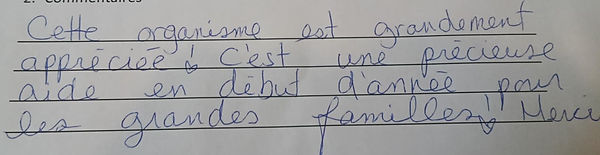 2. Commentaires
Cette organisme est grandement
appréciéé ! C'est une précieuse
aide en début d'année pour
les grandes familles!! Merci